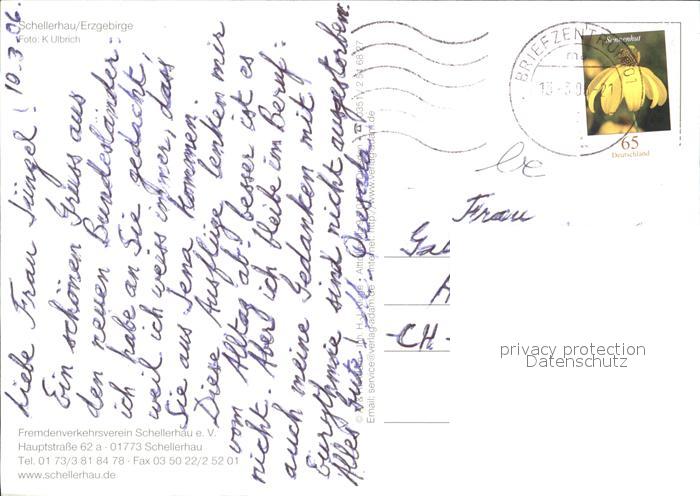 Schellerhau/Erzgebirge
Foto: K Ulbrich
10.3.06.
Liebe Frau Süngel!
Ein schönen Gruss aus
den neuen Bundesländer:
ich habe an Sie gedacht,
weil ich weiss immer, dass
Sie aus Jena kommen.
Diese Ausflüge lenken mir
vom Alltag ab: besser ist es
nicht. Aber ich bleibe im Beruf:
auch meine Gedanken mit!
Eurythmie sind nicht ausgestorben.
Alles Gute,
Fremdenverkehrsverein Schellerhau e. V.
Hauptstraße 62 a · 01773 Schellerhau
Tel. 01 73/3 81 84 78 · Fax 03 50 22/2 52 01
www.schellerhau.de
Email: service@verlag-adam.de
BRIEFZENTRUM 01
-21
Sonnenhut
65
Deutschland
Frau
CH-
privacy protection
Datenschutz